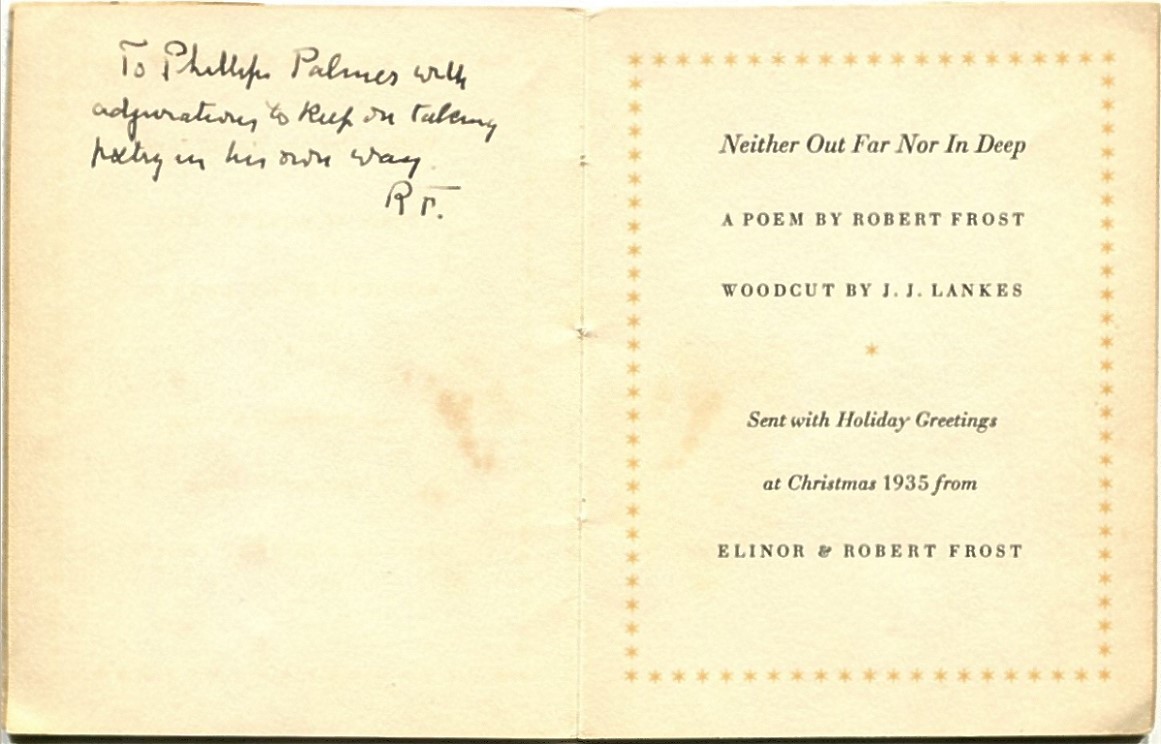 To Phillips Palmer with
adjurations to keep on taking
poetry in his own way.
R F.
Neither Out Far Nor In Deep
A POEM BY ROBERT FROST
WOODCUT BY J. J. LANKES
Sent with Holiday Greetings
at Christmas 1935 from
ELINOR & ROBERT FROST